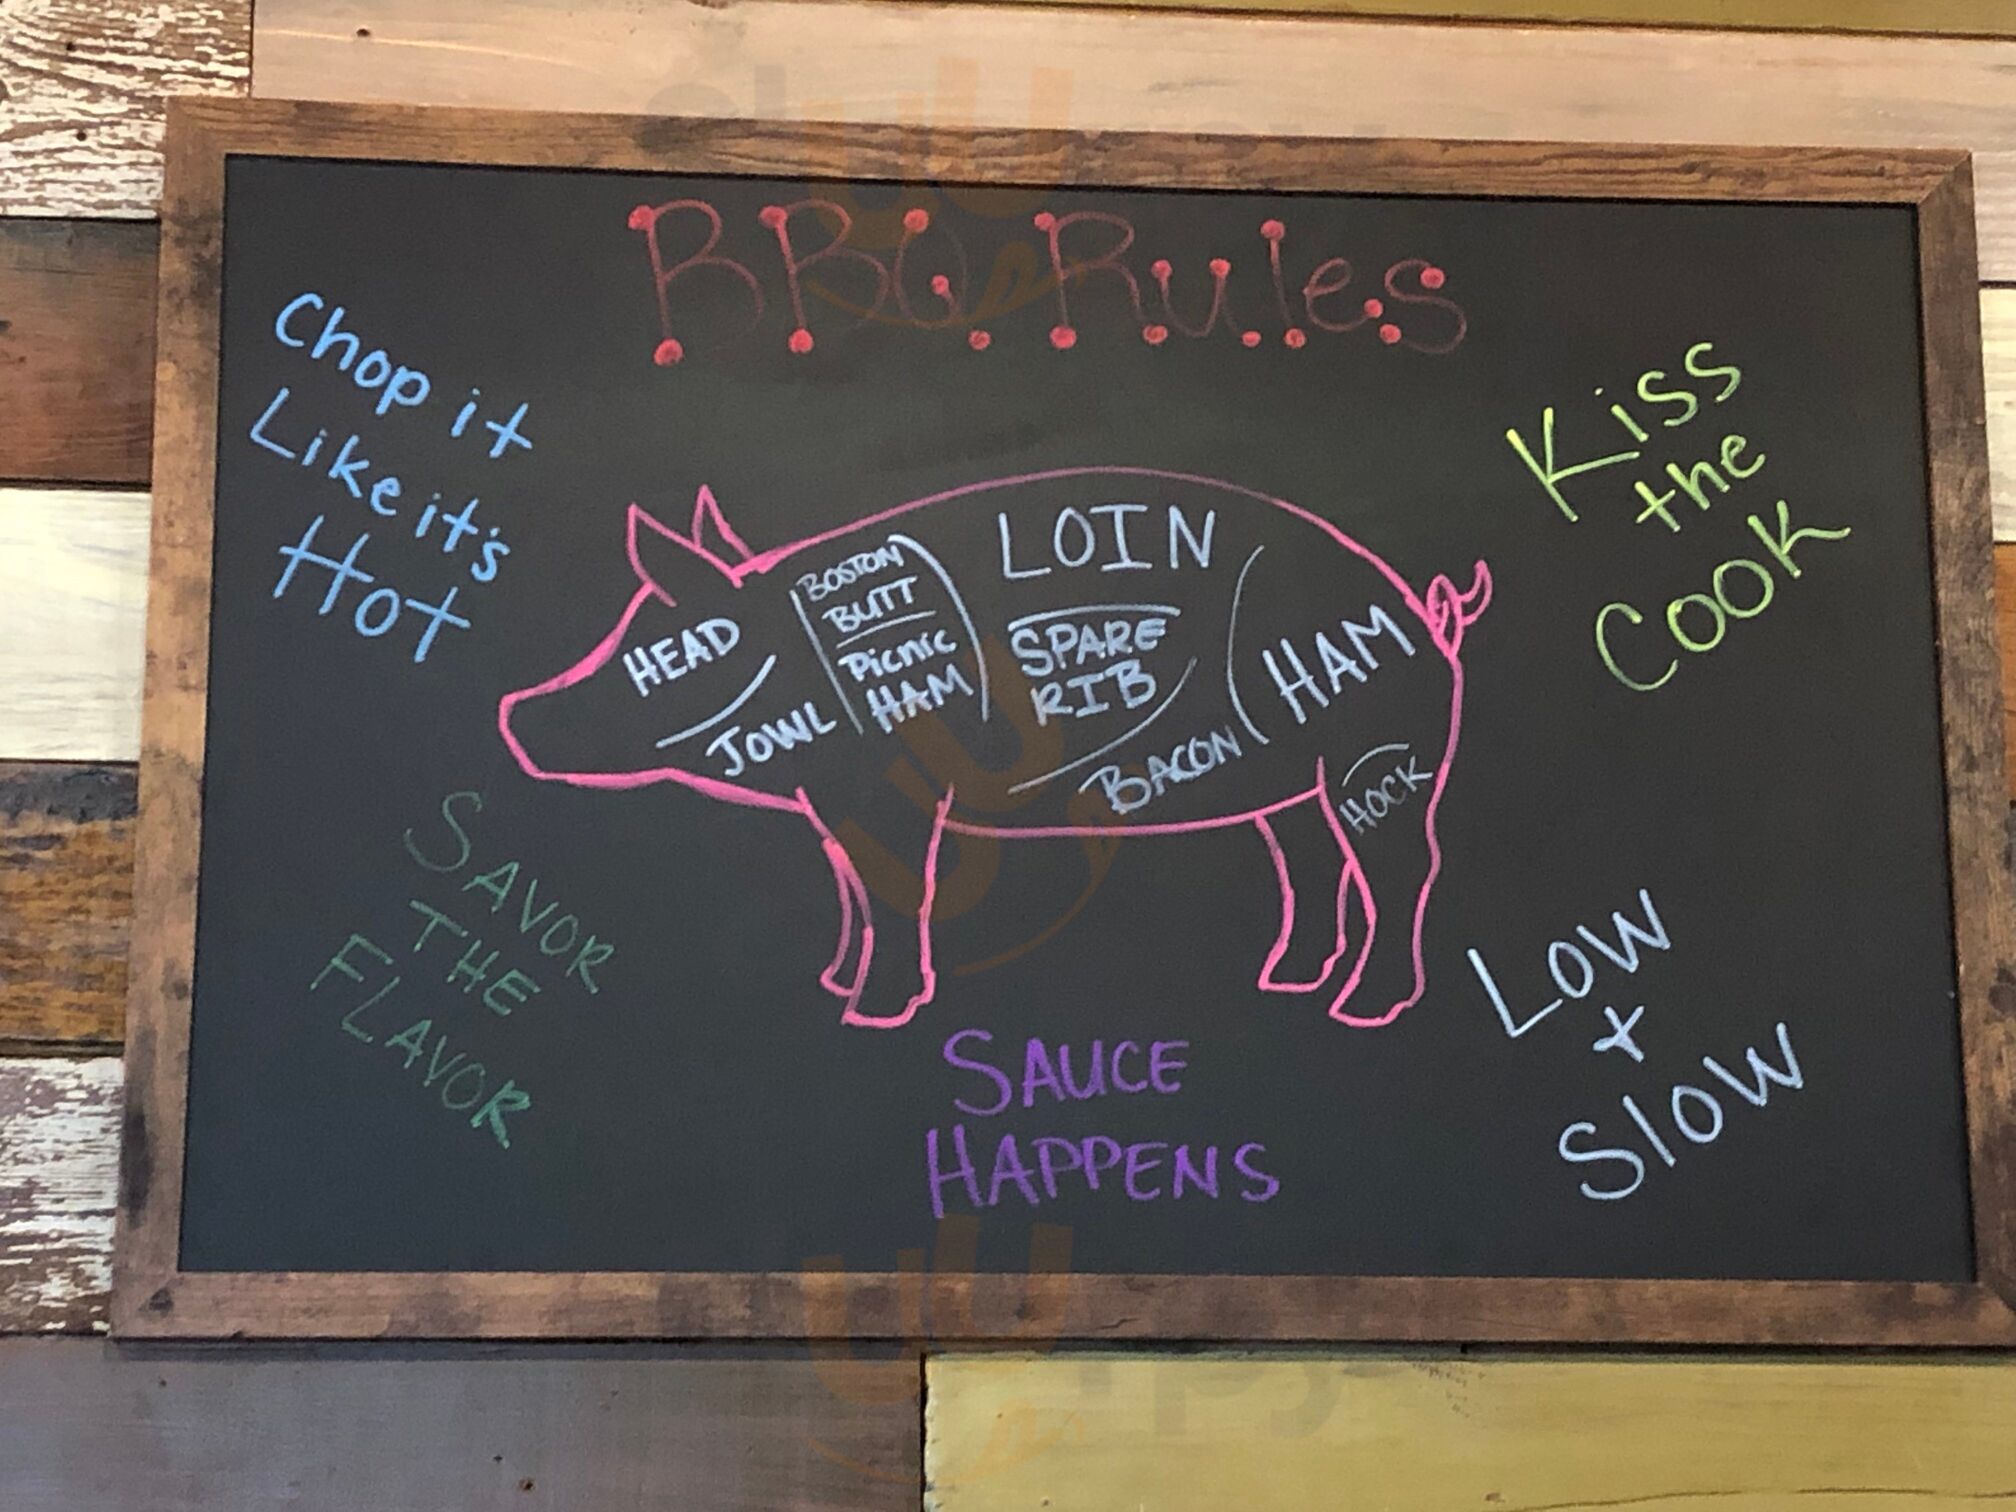 BBQ Rules
Chop it
Like it's
Hot
Kiss
the
Cook
LOIN
BOSTON
BUTT
Picnic
HAM
HEAD
JOWL
SPARE
RIB
BACON
HAM
HOCK
SAVOR
THE
FLAVOR
LOW
+
SlOW
SAUCE
HAPPENS